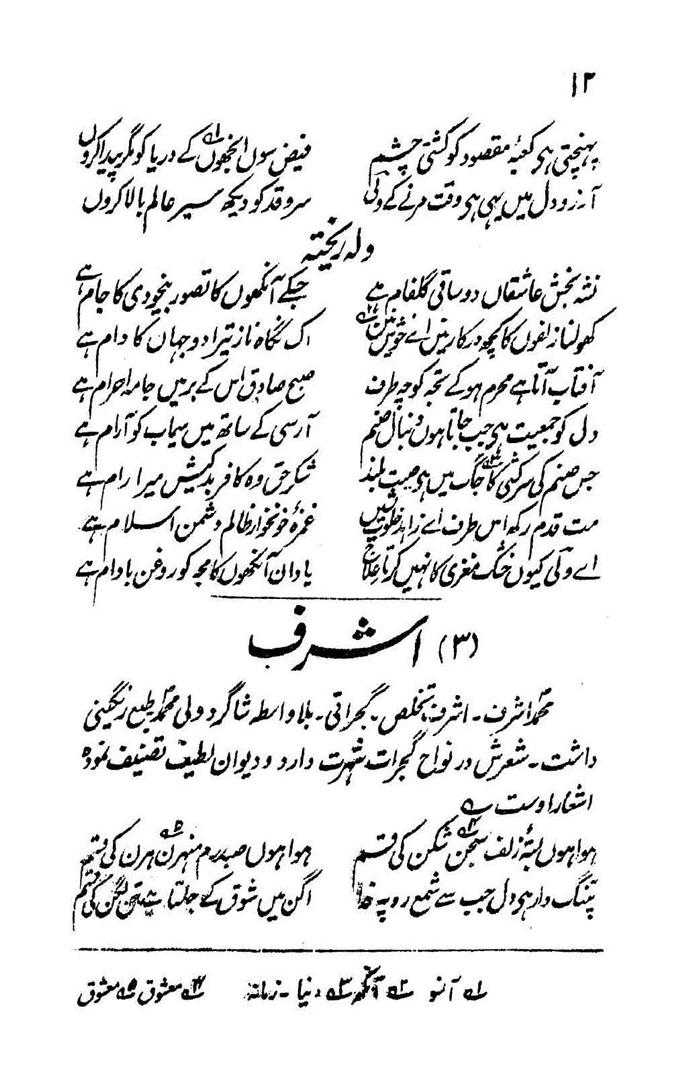 ۱۲
پہنچتی ہی کعبۂ مقصود کو کشتیِ چشم فیض سوں انجھوں کے دریا کو مگر پیدا کروں
آرزو دل میں یہی ہی وقت مرنے کے ولی سرو قد کو دیکھ سیر عالم بالا کروں
ولہ ریختہ
نشہ بخش عاشقاں دو ساقی گلفام ہے جسکے آنکھوں کا تصور بیخودی کا جام ہے
کھولنا زلفوں کا کچھ درکار نیں اے خوش نین اک نگاہ ناز تیرا دو جہاں کا دام ہے
آفتاب آتا ہے محرم ہو کے تجھ کوچہ طرف صبح صادق اس کے بر میں جامہ احرام ہے
دل کو جمعیت ہی جب جاتا ہوں دنبال صنم آرسی کے ساتھ میں سیماب کو آرام ہے
جس صنم کی سرکشی کا جگ میں ہی صیت بلند شکر حق وہ کافر بدکیش میرا رام ہے
مت قدم رکھ اس طرف اے زاہد خلوت نشیں غمزۂ خونخوار ظالم دشمن اسلام ہے
اے ولی کیوں خشک مغزی کا نہیں کرتا علاج یاد ان آنکھوں کا مجھ کو روغن بادام ہے
(۳) اشرف
محمد اشرف ۔ اشرف تخلص ۔ گجراتی ۔ بلا واسطہ شاگرد ولی محمد طبع رنگینی
داشت ۔ شعرش در نواح گجرات شہرت دارد و دیوان لطیف تصنیف نمودہ
اشعار اوست
ہوا ہوں بستۂ زلف سجن شکن کی قسم ہوا ہوں صید رم منہرن ہرن کی قسم
پتنگ وار ہی دل جب سے شمع رو پہ فدا اگن میں شوق کے جلتا ہے تن لگن کی قسم
۱؎ آنسو ۲؎ آنکھ ۳؎ دنیا ۔ زمانہ ۴؎ معشوق ۵؎ معشوق